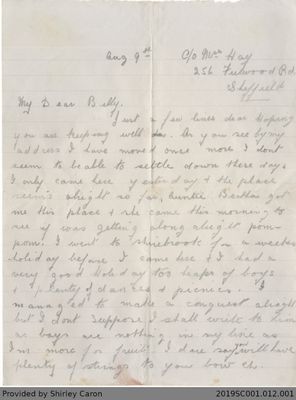 Aug 9th C/o Mrs Hay
256 Fulwood Rd
Sheffield
My Dear Billy.
Just a few lines dear hoping
you are keeping well. As you see by my
address I have moved once more I dont
seem to be able to settle down these days
I only came here yesterday & the place
seems alright so far, Auntie Bertha got
me this place & she came this morning to
see if I was getting along alright
I went to Shirebrook for a weeks
holiday before I came here & I had a
very good holiday too heaps of boys
& plenty of dances & picnics. I
managed to make a conquest alright
but I dont suppose I shall write to him
as boys are nothing in my line as
I'm more for fruit. I dare say you will have
plenty of strings to your bow eh.
Provided by Shirley Caron 2019SC001.012.001